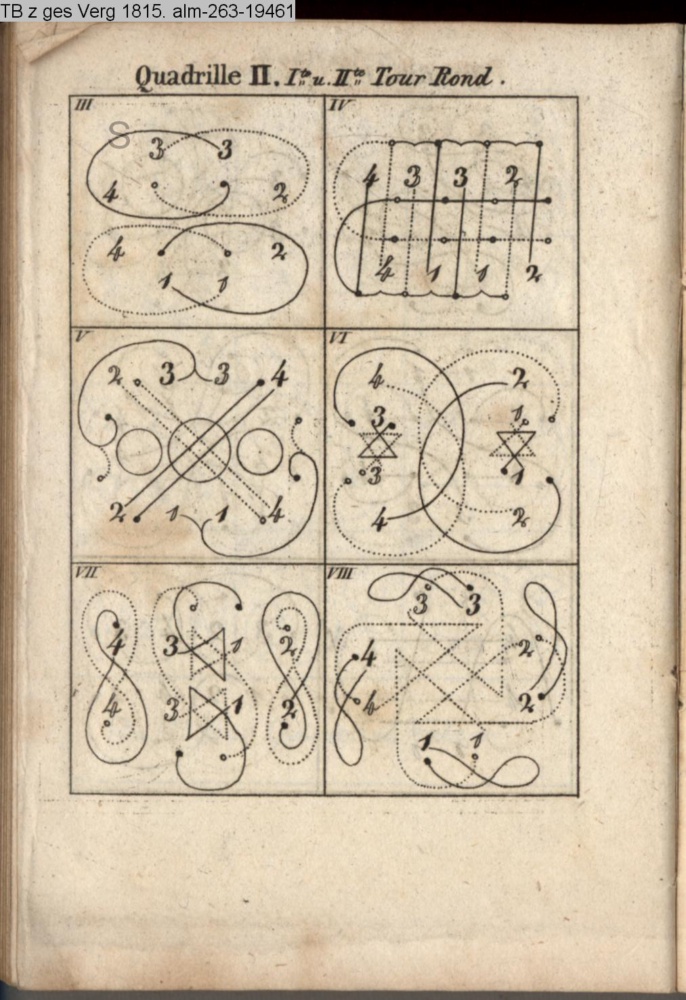 TB z ges Verg 1815. alm-263-19461
Quadrille II. I.te u. II.te Tour Rond.
III
S
3 3
4 2
4 2
1 1
IV
4 3 3 2
4 1 1 2
V
2 3 3 4
2 1 1 4
VI
4 2
3 1
3 1
4 2
VII
4 3 1 2
4 3 1 2
VIII
3 3
4 2
4 2
1 1